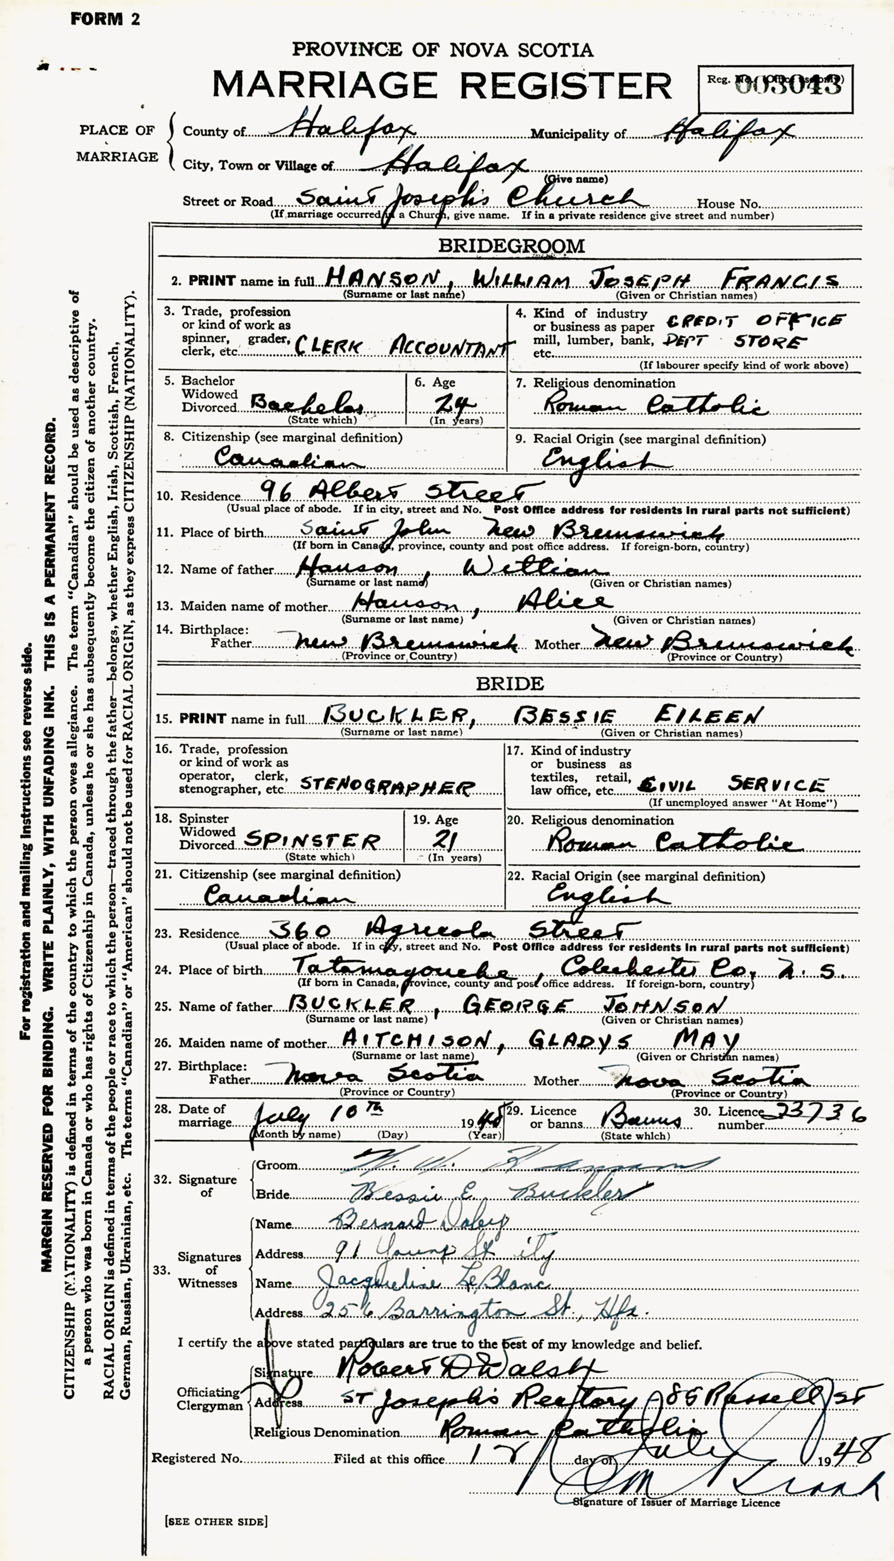 FORM 2
PROVINCE OF NOVA SCOTIA
MARRIAGE REGISTER
Reg. No. (Office use only) 003043
PLACE OF MARRIAGE
County of Halifax Municipality of Halifax
City, Town or Village of Halifax
(Give name)
Street or Road Saint Joseph's Church House No.
(If marriage occurred in a Church, give name. If in a private residence give street and number)
BRIDEGROOM
2. PRINT name in full HANSON, WILLIAM JOSEPH FRANCIS
(Surname or last name) (Given or Christian names)
3. Trade, profession
or kind of work as
spinner, grader,
clerk, etc. CLERK ACCOUNTANT
4. Kind of industry
or business as paper
mill, lumber, bank,
etc. CREDIT OFFICE
DEPT STORE
(If labourer specify kind of work above)
5. Bachelor
Widowed
Divorced Bachelor
(State which)
6. Age
24
(In years)
7. Religious denomination
Roman Catholic
8. Citizenship (see marginal definition)
Canadian
9. Racial Origin (see marginal definition)
English
10. Residence 96 Albert Street
(Usual place of abode. If in city, street and No. Post Office address for residents in rural parts not sufficient)
11. Place of birth Saint John New Brunswick
(If born in Canada, province, county and post office address. If foreign-born, country)
12. Name of father Hanson, William
(Surname or last name) (Given or Christian names)
13. Maiden name of mother Hanson, Alice
(Surname or last name) (Given or Christian names)
14. Birthplace:
Father New Brunswick Mother New Brunswick
(Province or Country) (Province or Country)
BRIDE
15. PRINT name in full BUCKLER, BESSIE EILEEN
(Surname or last name) (Given or Christian names)
16. Trade, profession
or kind of work as
operator, clerk,
stenographer, etc. STENOGRAPHER
17. Kind of industry
or business as
textiles, retail,
law office, etc. CIVIL SERVICE
(If unemployed answer "At Home")
18. Spinster
Widowed
Divorced SPINSTER
(State which)
19. Age
21
(In years)
20. Religious denomination
Roman Catholic
21. Citizenship (see marginal definition)
Canadian
22. Racial Origin (see marginal definition)
English
23. Residence 360 Agricola Street
(Usual place of abode. If in city, street and No. Post Office address for residents in rural parts not sufficient)
24. Place of birth Tatamagouche, Colchester Co, N.S.
(If born in Canada, province, county and post office address. If foreign-born, country)
25. Name of father BUCKLER, GEORGE JOHNSON
(Surname or last name) (Given or Christian names)
26. Maiden name of mother AITCHISON, GLADYS MAY
(Surname or last name) (Given or Christian names)
27. Birthplace:
Father Nova Scotia Mother Nova Scotia
(Province or Country) (Province or Country)
28. Date of
marriage July 10th 1948
(Month by name) (Day) (Year)
29. Licence
or banns Banns
(State which)
30. Licence
number 23736
32. Signature of
Groom
Bride Bessie E. Buckler
33. Signatures of Witnesses
Name Bernard Daley
Address 91 Young St
Name Jacqueline LeBlanc
Address 256 Barrington St., Hfx.
I certify the above stated particulars are true to the best of my knowledge and belief.
Officiating Clergyman
Signature Robert D Walsh
Address St Joseph's Rectory 85 Russell St
Religious Denomination Roman Catholic
Registered No. Filed at this office 12 day of July 1948
Signature of Issuer of Marriage Licence
[SEE OTHER SIDE]
For registration and mailing instructions see reverse side.
MARGIN RESERVED FOR BINDING. WRITE PLAINLY, WITH UNFADING INK. THIS IS A PERMANENT RECORD.
CITIZENSHIP (NATIONALITY) is defined in terms of the country to which the person owes allegiance. The term "Canadian" should be used as descriptive of
a person who was born in Canada or who has rights of Citizenship in Canada, unless he or she has subsequently become the citizen of another country.
RACIAL ORIGIN is defined in terms of the people or race to which the person—traced through the father—belongs, whether English, Irish, Scottish, French,
German, Russian, Ukrainian, etc. The terms "Canadian" or "American" should not be used for RACIAL ORIGIN, as they express CITIZENSHIP (NATIONALITY).